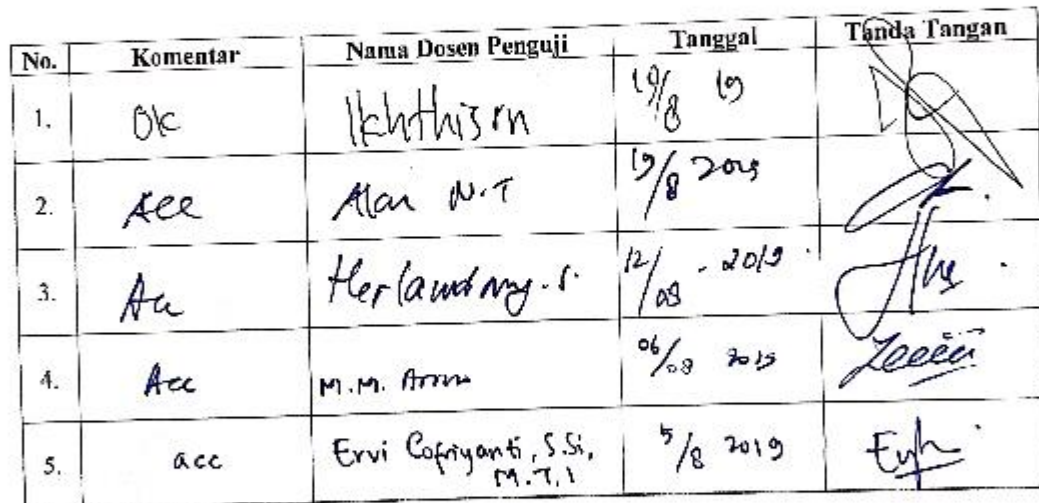 No. Komentar Nama Dosen Penguji Tanggal Tanda Tangan
1. OK Ikhthison 19/8 19
2. Acc Alan N.T 19/8 2019
3. Acc 12/08 - 2019
4. Acc M.M. 06/08 2019
5. acc Ervi Cofriyanti, S.Si, 5/8 2019
M.T.I